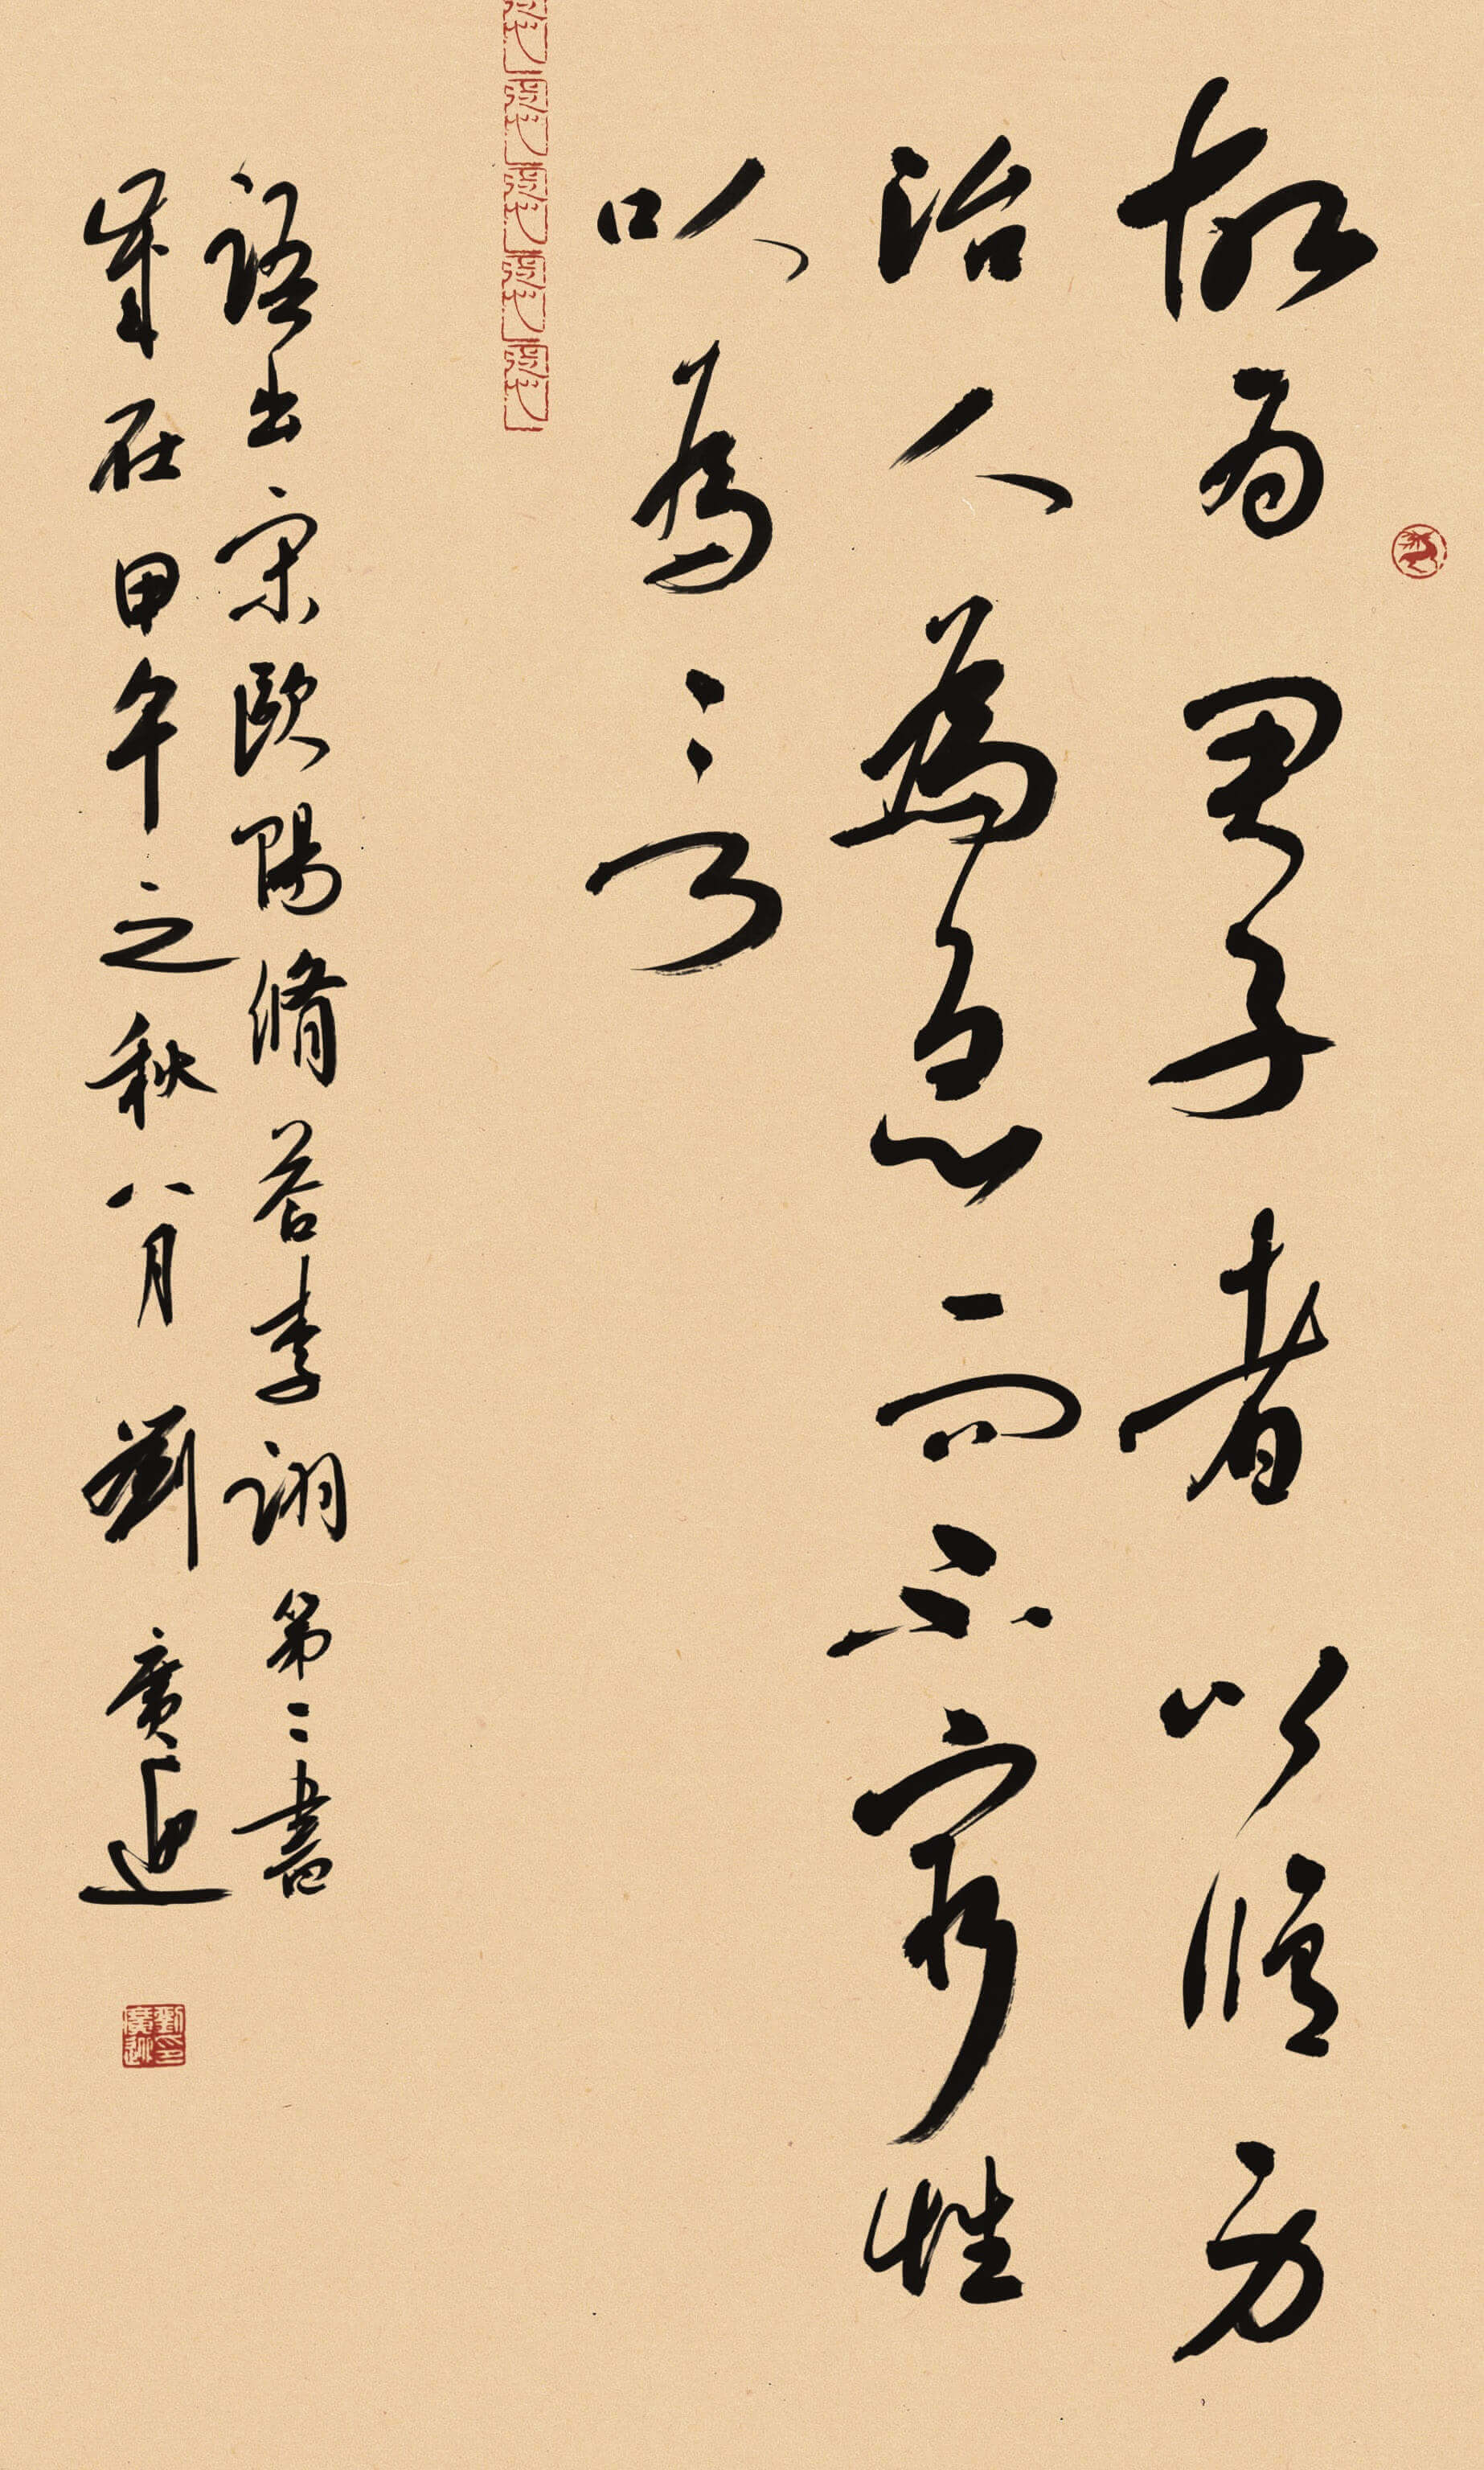 故為君子者以脩身
治人為急而不窮性
以為言
語出宋歐陽脩荅李詡第二書
歲在甲午之秋八月劉廣迎
劉印廣迎